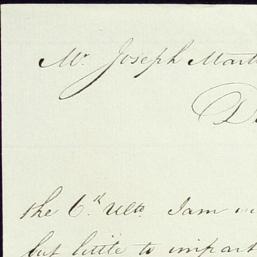 Mr. Joseph Mart
D
the 6.th Ulto. I am
but little to impart